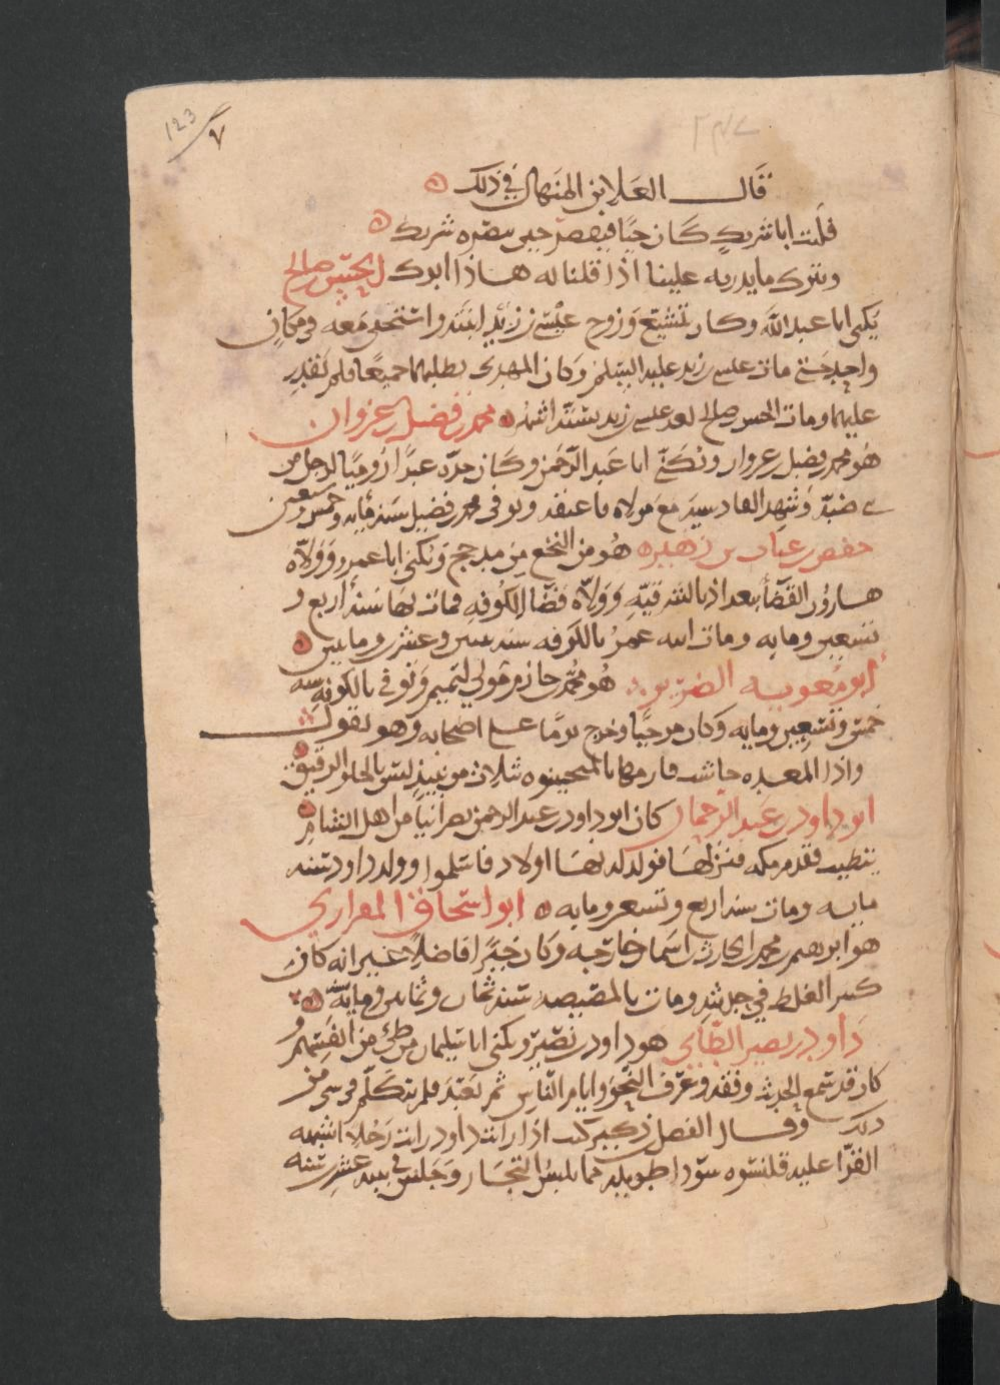 123
٧
قال العلا بن المنهال في ذلك
فليت ابا شريك كان حيا فيقصر حين يبصره شريك
ويترك من تدريه علينا اذا قلنا له هاذا ابوك الحسن بن صالح
يكنى ابا عبد الله وكان يتشيع وزوج عيسى بن زيد ابنته واستخفى معه في مكان
واحد حتى مات عيسى بن زيد عليه السلم وكان المهدى يطلبهما جميعا فلم يقدر
عليهما ومات الحسن بن صالح بعد عيسى بن زيد بستة اشهر محمد بن فضيل بن غزوان
هو محمد بن فضيل بن غزوان ويكنى ابا عبد الرحمن وكان جده عبدا روميا لرجل من
بنى ضبة وشهد القادسية مع مولاه فاعتقه وتوفى محمد بن فضيل سنة مايه وخمس وتسعين
حفص بن غياث هو من النخع من مدحج ويكنى ابا عمرو وولاه
هارون القضأ ببغداد بالشرقية وولاه قضا الكوفه فمات بها سنة اربع و
تسعين ومايه ومات ابنه عمر بالكوفه سنه وعشرين ومايتين
ابو معويه الضرير هو محمد بن خازم مولى لتميم وتوفى بالكوفه سنه
خمس وتسعين ومايه وكان مرجيا وخرج يوما على اصحابه وهو يقول
واذا المعده جاشت فارمها بالمنجنيق ثلاث من نبيذ ليس بالحلو الرقيق
ابو داود بن عبد الرحمان كان ابو داود عبد الرحمن نصرانيا من اهل الشام
يتطبب فقدم مكه فنزلها فولد له بها اولاد فاسلموا وولد داود سنه
مايه ومات سنه اربع وتسعين ومايه ابو اسحاق الفزاري
هو ابرهيم بن محمد بن الحارث بن اسما بن خارجه وكان خيرا فاضلا غير انه كان
كثير الغلط في حديثه ومات بالمصيصه سنه ثمان وثمانين ومايه
داود بن نصير الطايي هو داود بن نصير ويكنى ابا سليمان من طئ من انفسهم و
كان قد سمع الحديث وفقه وعرف النحو وايام الناس ثم تعبد فلم يتكلم في شى من
ذلك وقال الفضل بن دكين كنت اذا رايت داود رايت رجلا لا يشبه
القرا عليه قلنسوه سودا طويله مما يلبس التجار وجلس في بيته عشرين سنه